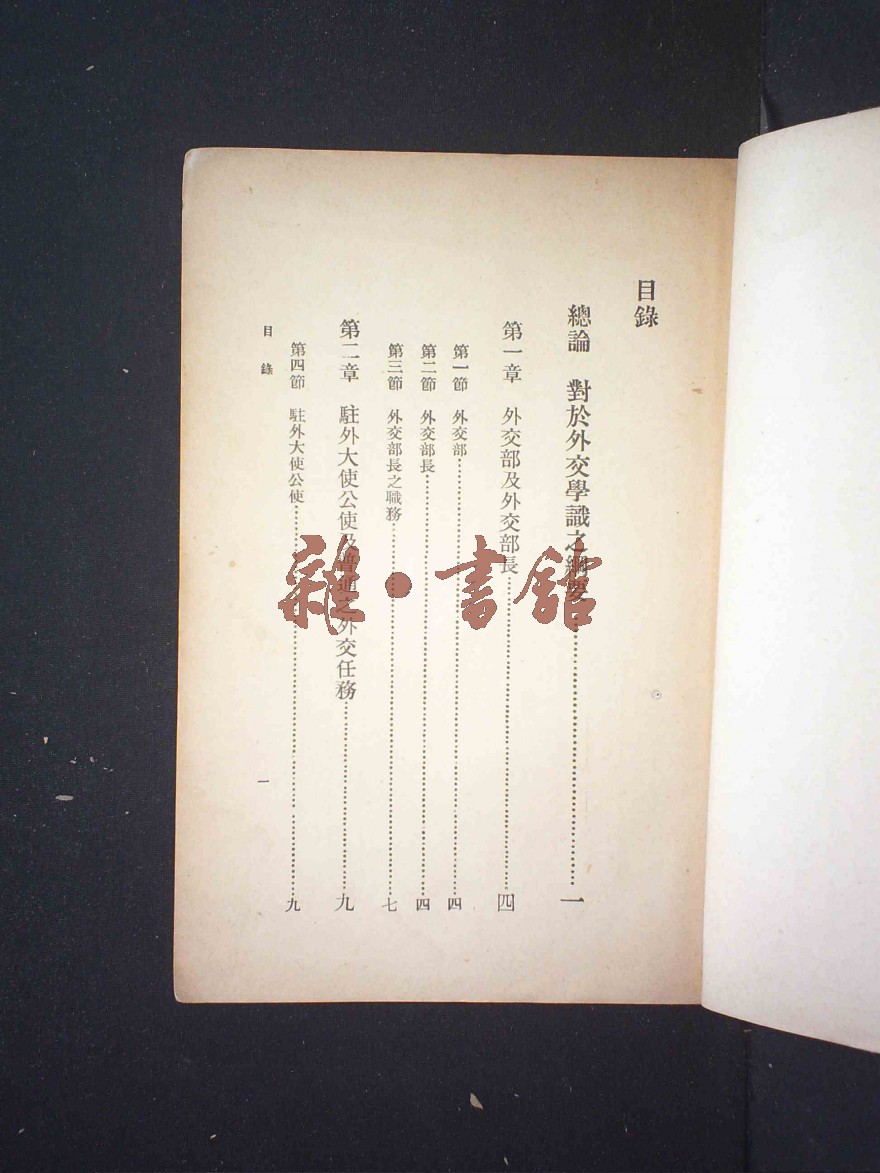 目錄
總論　對於外交學識之綱要…………一
第一章　外交部及外交部長…………四
第一節　外交部…………四
第二節　外交部長…………四
第三節　外交部長之職務…………七
第二章　駐外大使公使及普通之外交任務…………九
第四節　駐外大使公使…………九
目錄
一
雜·書館